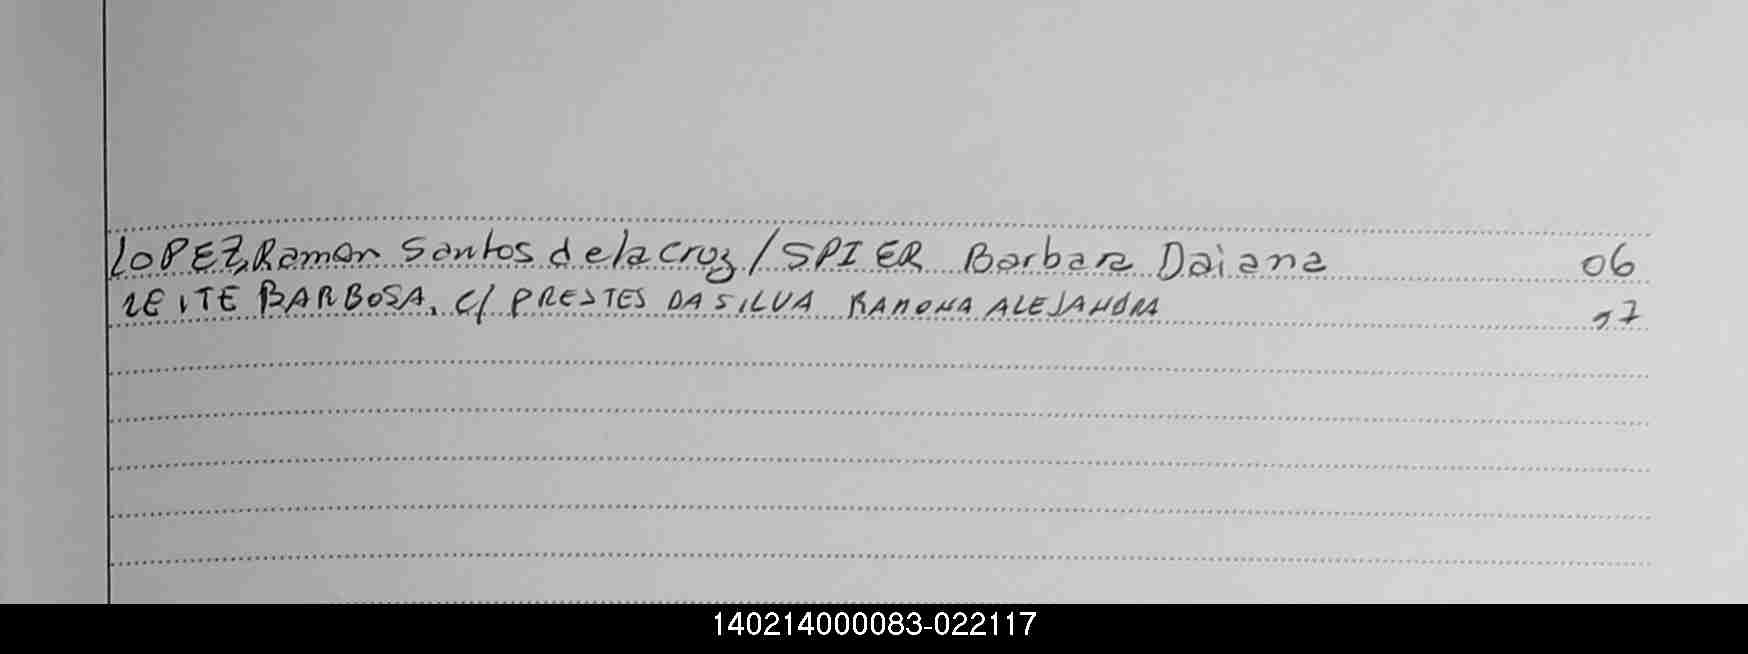 LOPEZ, Ramon Santos de la cruz / SPIER Barbara Daiana 06
LEITE BARBOSA, c/ PRESTES DA SILVA RAMONA ALEJANDRA 07
140214000083-022117